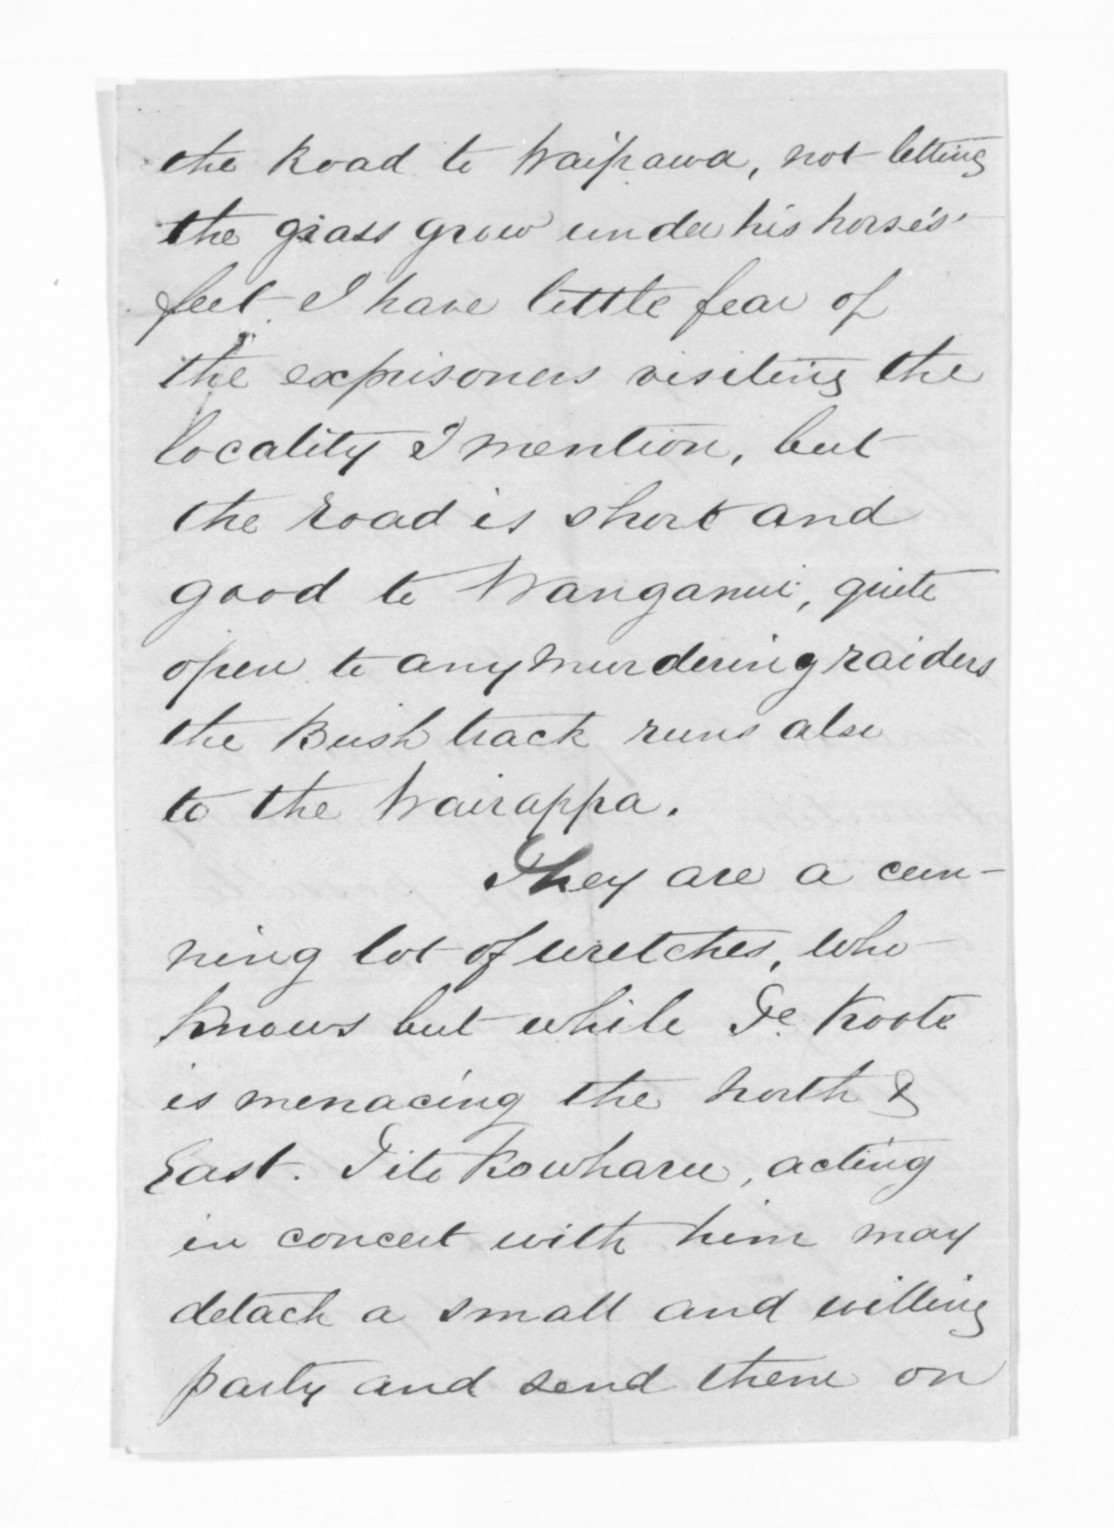 the Road to Waipawa, not letting
the grass grow under his horse's'
feet. I have little fear of
the exprisoners visiting the
locality I mention, but
the road is short and
good to Wanganui, quite
open to any murdering raiders
the Bush track runs also
to the Wairappa.
They are a cun-
ning lot of wretches, who
knows but while Te Kooti
is menacing the North &
East. Tito Kowharu, acting
in concert with him may
detach a small and willing
party and send them on